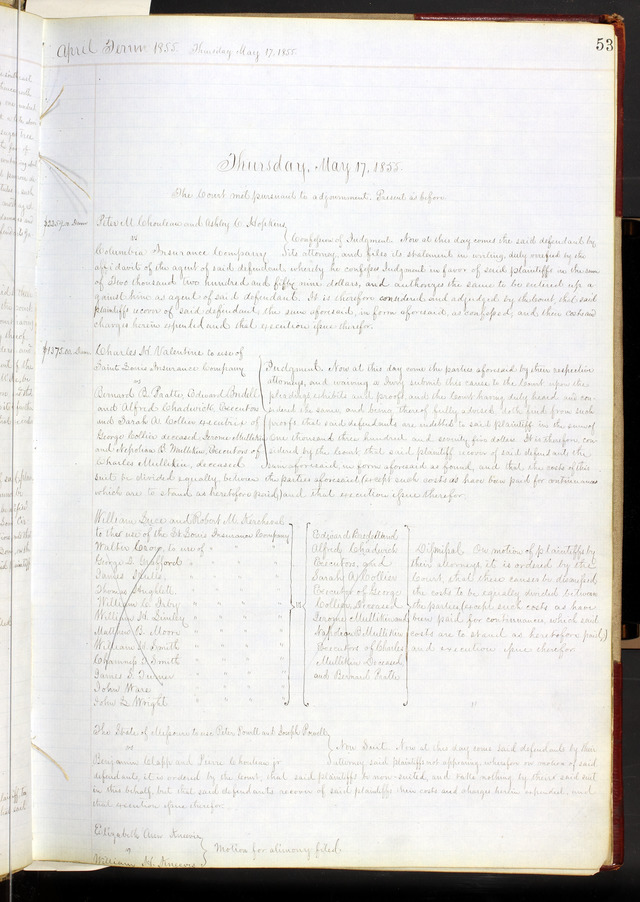 April Term 1855. Thursday May 17, 1855.
53
Thursday, May 17, 1855.
The Court met pursuant to adjournment. Present as before.
Peter M. Chouteau and Ashley C. Hopkins
vs
Columbia Insurance Company
Confession of Judgment. Now at this day comes the said defendant by
its attorney and files its statement in writing, duly verified by the
affidavit of the agent of said defendant whereby he confesses Judgment in favor of said plaintiffs in the sum
of Two thousand two hundred and fifty nine dollars, and authorizes the same to be entered up a
gainst him a agent of said defendant. It is therefore considered and adjudged by the Court, that said
plaintiffs recover of said defendant the sum aforesaid, in form aforesaid, as confessed, and their costs and
charges herein expended and that execution issue therefor.
$1375.00
Charles W. Valentine to use of
Saint Louis Insurance Company
vs
Bernard B. Pratte, Edward Bredell
and Alfred Chadwick Executors
and Sarah A. Collier executrix of
George Collier deceased Jerome Mulliken
and Napoleon B. Mulliken, Executors of
Charles Mulliken, deceased
Judgment. Now at this day come the parties aforesaid by their respective
attorneys, and waiving a Jury submit this cause to the Court upon the
pleadings exhibits and proof, and the Court having duly heard and con-
sidered the same, and being thereof fully advised doth find from such
proofs that said defendants are indebted to said plaintiff in the sum of
One thousand three hundred and seventy five dollars. It is therefore con-
sidered by the Court that said plaintiff recover of said defendants the
sum aforesaid, in form aforesaid as found, and that the costs of this
suit be divided equally between the parties aforesaid (except such costs as have been paid for continuances
which are to stand as heretofore paid) and that execution issue therefor.
William and Robert M.
to the use of the St Louis Insurance Company
Walter to use of " " "
George D. " " "
James " " "
Thomas " " "
William C. Irby " " "
William H. " " "
Matthew B. Moore " " "
William H. Smith " " "
Smith " " "
James S. Turner " " "
John Ware " " "
John L. Wright " " "
vs
Edward Bredell and
Alfred Chadwick
Executors, and
Sarah A. Collier
Executrix of George
Collier Deceased
Jerome Mulliken and
Napoleon B Mulliken
Executors of Charles
Mulliken Deceased
and Bernard Pratte
Dismissal. On motion of plaintiffs by
their attorneys it is ordered by the
Court, that these causes be dismissed
the costs to be equally divided between
the parties (except such costs as have
been paid for continuances, which said
costs are to stand as heretofore paid)
and execution issue therefor.
The State of Missouri to use Peter Powell and Joseph Powell
vs
Benjamin Clapp and Pierre Chouteau jr
Non Suit. Now at this day come said defendants by their
attorney said plaintiffs not appearing, wherefore on motion of said
defendants, it is ordered by the Court, that said plaintiffs be non-suited, and take nothing by their said suit
in this behalf, but that said defendants recover of said plaintiffs their costs and charges herein expended, and
that execution issue therefor.
Elizabeth Ann
vs
William H.
Motion for alimony filed.